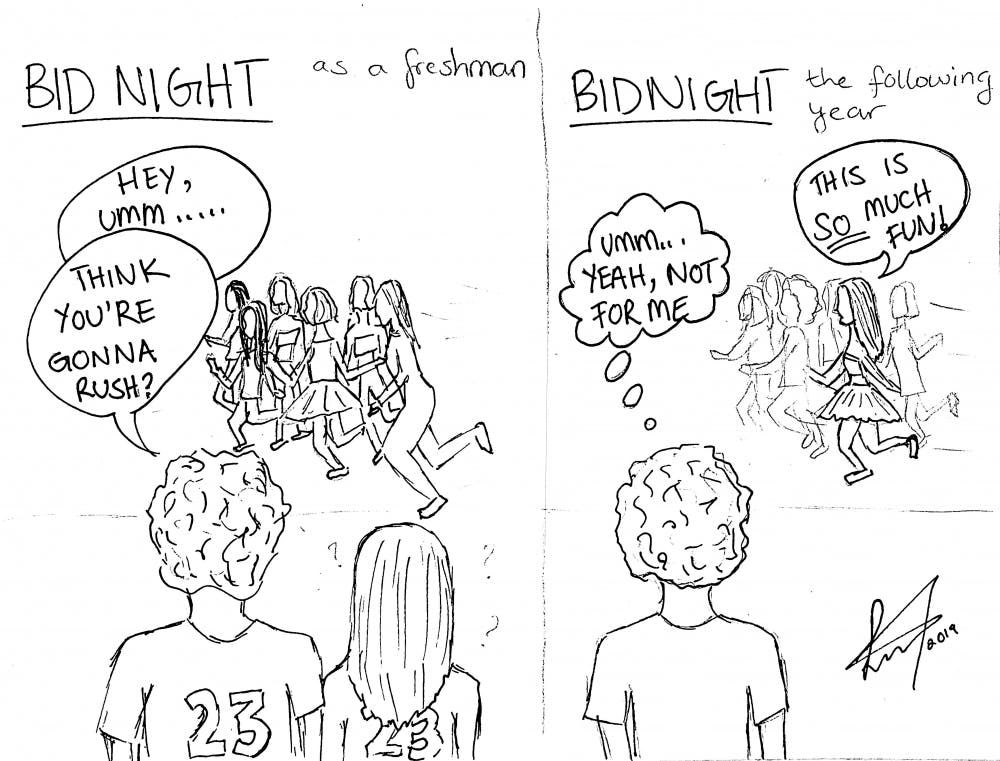 BID NIGHT
as a freshman
HEY,
umm.....
THINK
YOU'RE
GONNA
RUSH?
?
?
?
23
23
BIDNIGHT
the following
year
THIS IS
SO MUCH
FUN!
UMM...
YEAH, NOT
FOR ME
2019